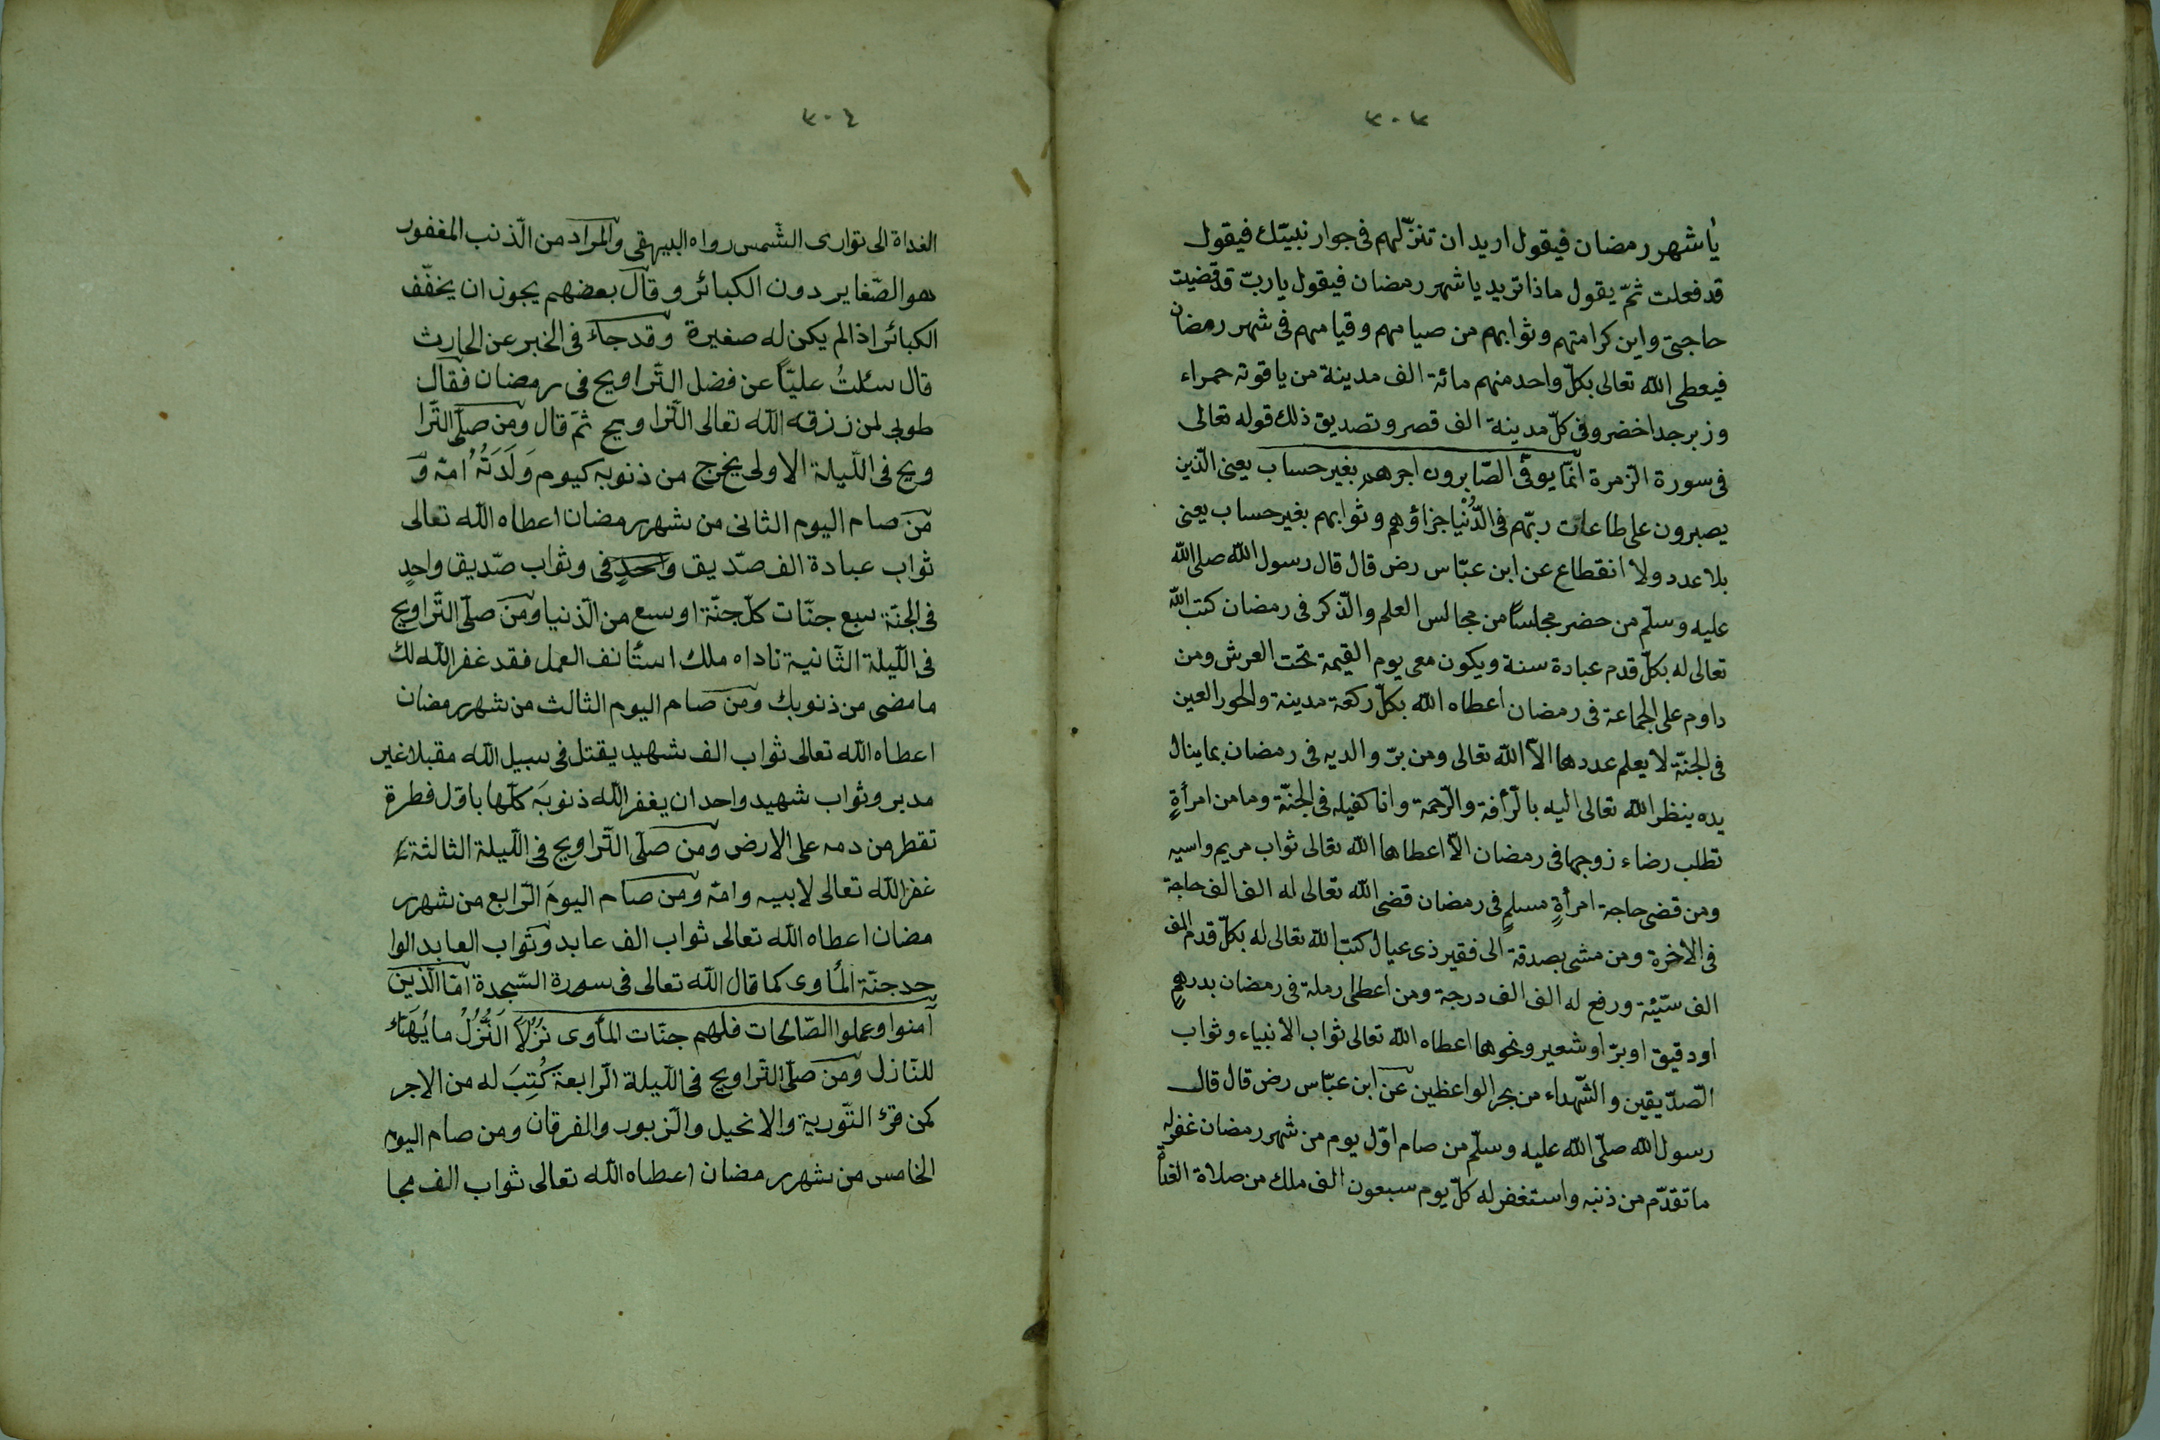 ٣٠٣
يا شهر رمضان فيقول اريد ان تنزّلهم فى جوار نبيّك فيقول
قد فعلت ثمّ يقول ماذا تريد يا شهر رمضان فيقول ياربّ قد قضيت
حاجتى واين كرامتهم وثوابهم من صيامهم وقيامهم فى شهر رمضان
فيعطى الله تعالى بكلّ واحد منهم مائة الف مدينة من ياقوتة حمراء
وزبرجد اخضر وفى كلّ مدينة الف قصر وتصديق ذلك قوله تعالى
فى سورة الزمرة انّما يوفّى الصّابرون اجرهم بغير حساب يعنى الّذين
يصبرون على طاعات ربّهم فى الدُّنْيا جزاؤهم وثوابهم بغير حساب يعنى
بلا عدد ولا انقطاع عن ابن عبّاس رض قال قال رسول الله صلى الله
عليه وسلّم من حضر مجلسًا من مجالس العلم والذّكر فى رمضان كتب الله
تعالى له بكلّ قدم عبادة سنة ويكون معى يوم القيمة تحت العرش ومن
داوم على الجماعة فى رمضان اعطاه الله بكلّ ركعة مدينة والحور العين
فى الجنّة لا يعلم عددها الاّ الله تعالى ومن برّ والديه فى رمضان بما ينال
يده ينظر الله تعالى اليه بالرّأفة والرّحمة وانا كفيله فى الجنّة وما من امرأةٍ
تطلب رضاء زوجها فى رمضان الاّ اعطاها الله تعالى ثواب مريم واسيه
ومن قضى حاجة امرأةٍ مسلمٍ فى رمضان قضى الله تعالى له الف الف حاجة
فى الاخرة ومن مشى بصدقة الى فقير ذى عيال كتب الله تعالى له بكلّ قدم الف
الف سيّئة ورفع له الف الف درجة ومن اعطى رملة فى رمضان بدرهمٍ
او دقيق او برّ او شعير ونحوها اعطاه الله تعالى ثواب الانبياء وثواب
الصّدّيقين والشّهداء من بحر الواعظين عن ابن عبّاس رض قال قال
رسول الله صلّى الله عليه وسلّم من صام اوّل يوم من شهر رمضان غفر له
ما تقدّم من ذنبه واستغفر له كلّ يوم سبعون الف ملك من صلاة الغداة
٣٠٤
الغداة الى توارى الشّمس رواه البيهقى والمراد من الّذنب المغفور
هو الصّغاير دون الكبائر وقال بعضهم يجوز ان يخفّف
الكبائر اذا لم يكن له صغيرة وقد جاء فى الخبر عن الحارث
قال سئلتُ عليّاً عن فضل التّراويح فى رمضان فقال
طوبى لمن رزقه الله تعالى التّراويح ثمّ قال ومن صلّى التّرا
ويح فى اللّيلة الاولى يخرج من ذنوبه كيوم وَلَدَتْهُ امّه و
من صام اليوم الثانى من شهر رمضان اعطاه الله تعالى
ثواب عبادة الف صدّيق واحدٍ فى وثواب صدّيق واحدٍ
فى الجنّة سبع جنّات كلّ جنّة اوسع من الّدنيا ومن صلّى التّراويح
فى اللّيلة الثّانية ناداه ملك استأنف العمل فقد غفر الله لك
ما مضى من ذنوبك ومن صام اليوم الثالث من شهر رمضان
اعطاه الله تعالى ثواب الف شهيد يقتل فى سبيل الله مقبلا غير
مدبر وثواب شهيد واحد ان يغفر الله ذنوبَه كلّها باوّل قطرة
تقطر من دمه على الارض ومن صلّى التّراويح فى اللّيلة الثالثة
غفر الله تعالى لابيه وامّه ومن صام اليومَ الّرابع من شهر ر
مضان اعطاه الله تعالى ثواب الف عابد وثواب العابد الوا
حد جنّة المأوى كما قال الله تعالى فى سورة السّجدة امّا الّذين
آمنوا وعملوا الصّالحات فلهم جنّات المأوى نُزُلاً اَلنُّزُلُ ما يُهَيّأ
للنّازل ومن صلّى التّراويح فى اللّيلة الّرابعة كُتِبَ له من الاجر
كمن قرء التّورية والانجيل والزبور والفرقان ومن صام اليوم
الخامس من شهر رمضان اعطاه الله تعالى ثواب الف مجا